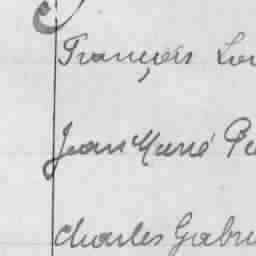 François Lou
Jean Marie Pi
Charles Gabri